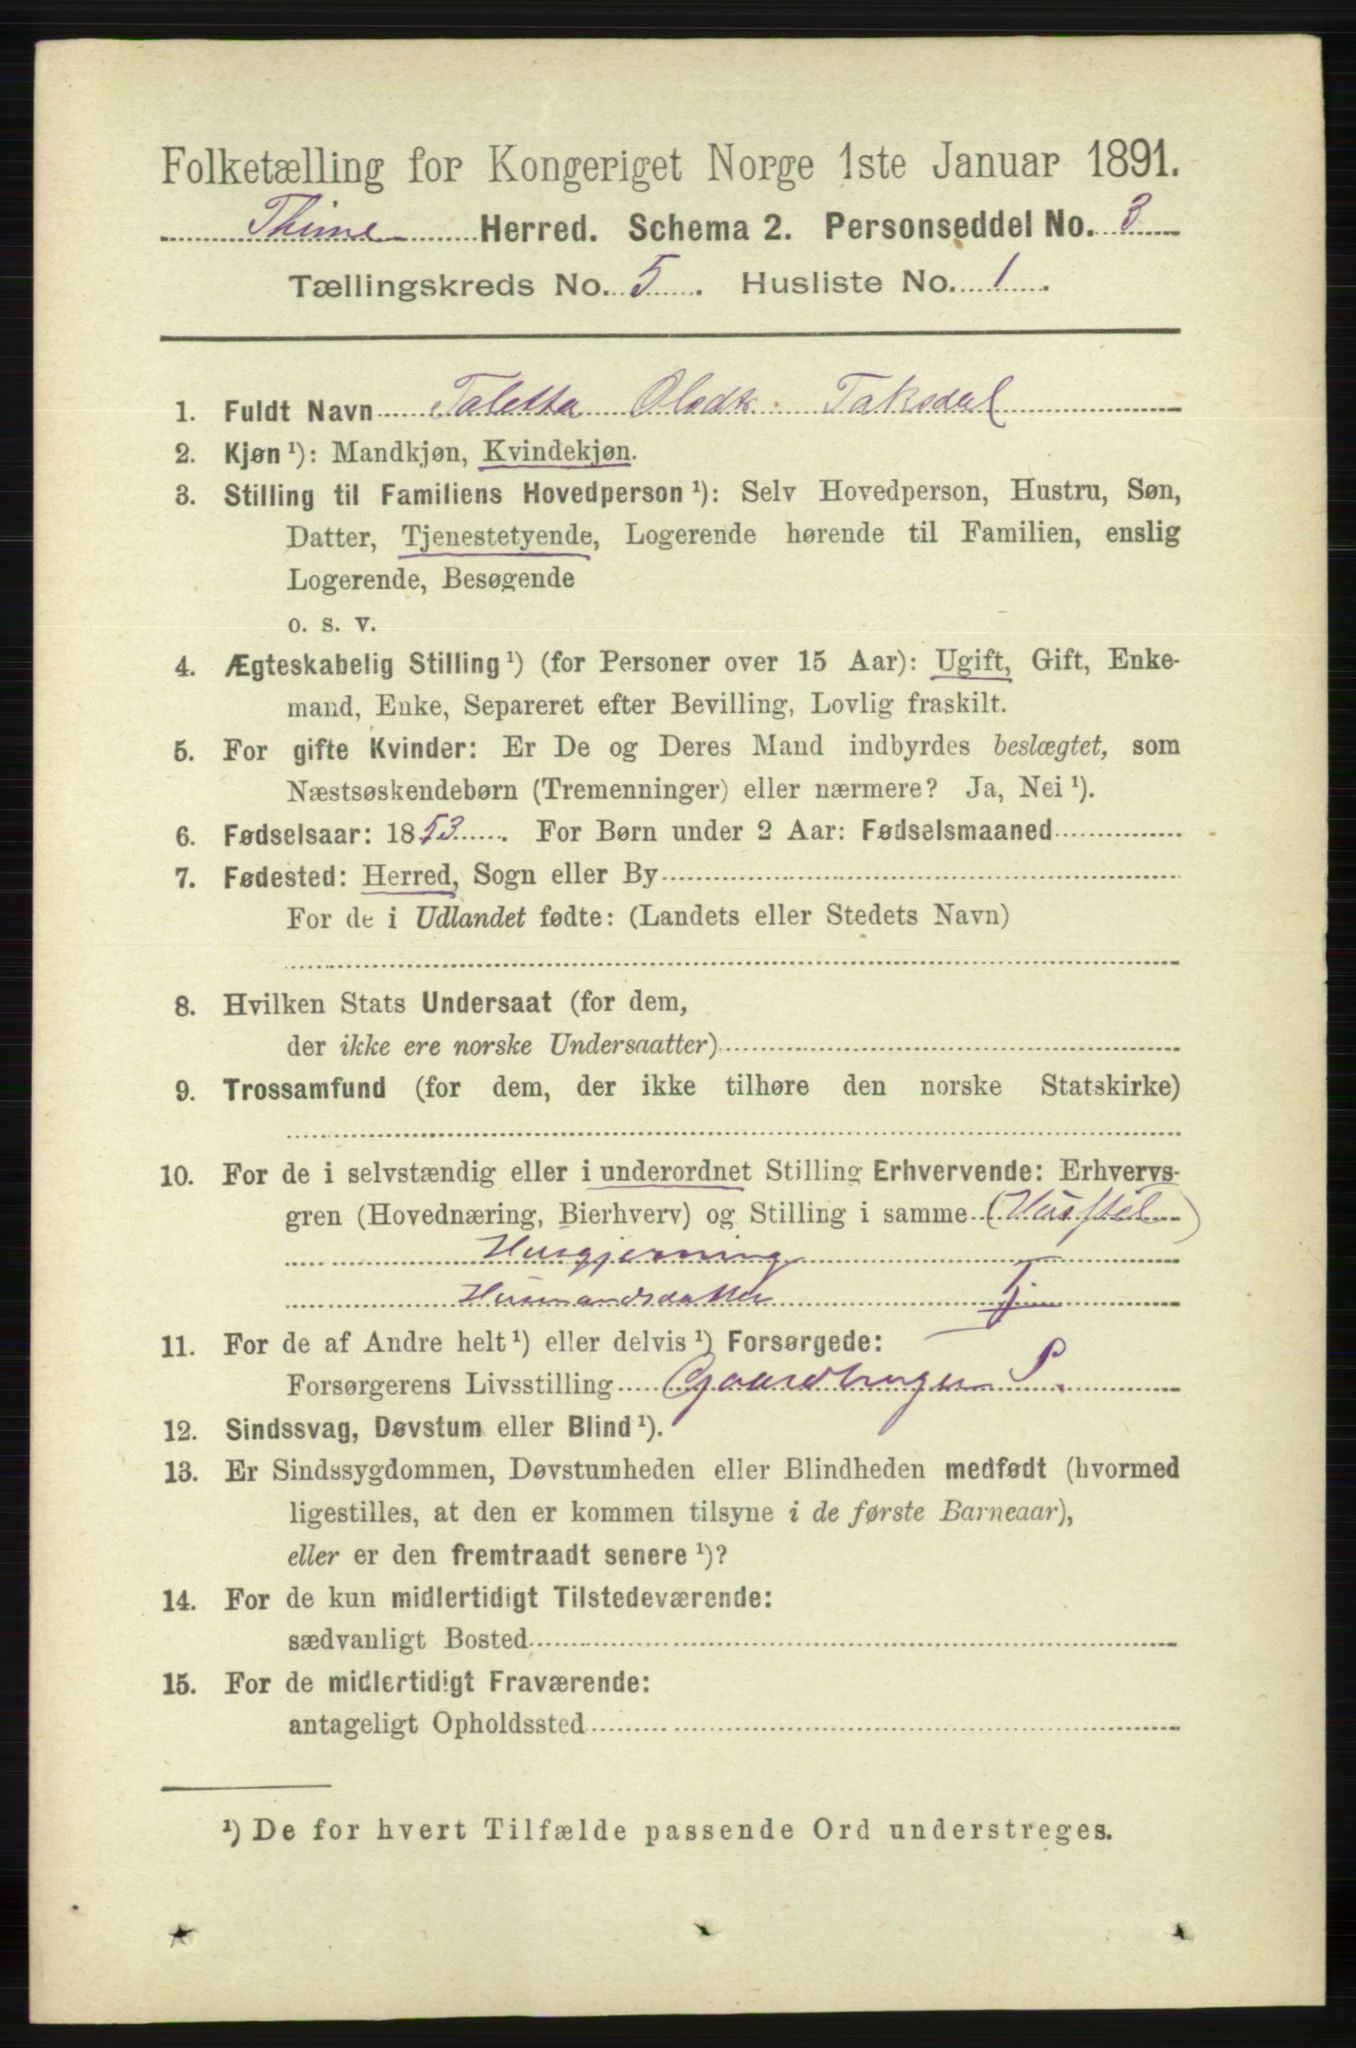 Folketælling for Kongeriget Norge 1ste Januar 1891.
Thime Herred. Schema 2. Personseddel No. 3
Tællingskreds No. 5. Husliste No. 1.
1. Fuldt Navn Taletta Olsdtr. Taksdal
2. Kjøn ¹): Mandkjøn, Kvindekjøn.
3. Stilling til Familiens Hovedperson ¹): Selv Hovedperson, Hustru, Søn,
Datter, Tjenestetyende, Logerende hørende til Familien, enslig
Logerende, Besøgende
o. s. v.
4. Ægteskabelig Stilling ¹) (for Personer over 15 Aar): Ugift, Gift, Enke-
mand, Enke, Separeret efter Bevilling, Lovlig fraskilt.
5. For gifte Kvinder: Er De og Deres Mand indbyrdes beslægtet, som
Næstsøskendebørn (Tremenninger) eller nærmere? Ja, Nei ¹).
6. Fødselsaar: 1853. For Børn under 2 Aar: Fødselsmaaned
7. Fødested: Herred, Sogn eller By
For de i Udlandet fødte: (Landets eller Stedets Navn)
8. Hvilken Stats Undersaat (for dem,
der ikke ere norske Undersaatter)
9. Trossamfund (for dem, der ikke tilhøre den norske Statskirke)
10. For de i selvstændig eller i underordnet Stilling Erhvervende: Erhvervs-
gren (Hovednæring, Bierhverv) og Stilling i samme (Husstel)
Husgjerning
Husmandsdatter Tj
11. For de af Andre helt ¹) eller delvis ¹) Forsørgede:
Forsørgerens Livsstilling Gaardbruger S.
12. Sindssvag, Døvstum eller Blind ¹).
13. Er Sindssygdommen, Døvstumheden eller Blindheden medfødt (hvormed
ligestilles, at den er kommen tilsyne i de første Barneaar),
eller er den fremtraadt senere ¹)?
14. For de kun midlertidigt Tilstedeværende:
sædvanligt Bosted
15. For de midlertidigt Fraværende:
antageligt Opholdssted
¹) De for hvert Tilfælde passende Ord understreges.